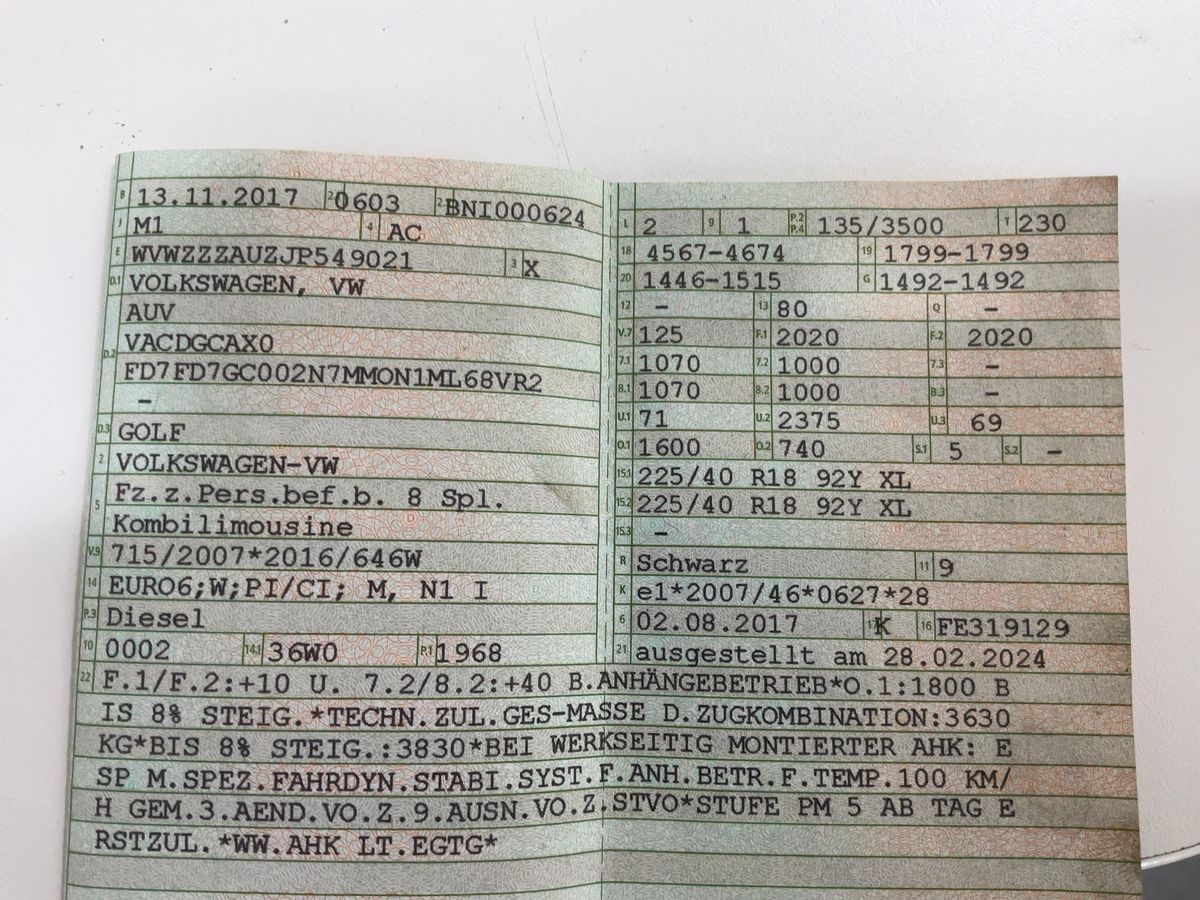 B 13.11.2017 2.1 0603 2.2 BNI000624
J M1 4 AC
E WVWZZZAUZJP549021 3 X
D.1 VOLKSWAGEN, VW
AUV
D.2 VACDGCAX0
FD7FD7GC002N7MMON1ML68VR2
–
D.3 GOLF
2 VOLKSWAGEN-VW
5 Fz.z.Pers.bef.b. 8 Spl.
Kombilimousine
V.9 715/2007*2016/646W
14 EURO6;W;PI/CI; M, N1 I
P.3 Diesel
10 0002 14.1 36W0 P.1 1968
L 2 9 1 P.2 P.4 135/3500 T 230
18 4567-4674 19 1799-1799
20 1446-1515 G 1492-1492
12 – 13 80 Q –
V.7 125 F.1 2020 F.2 2020
7.1 1070 7.2 1000 7.3 –
8.1 1070 8.2 1000 8.3 –
U.1 71 U.2 2375 U.3 69
O.1 1600 O.2 740 S.1 5 S.2 –
15.1 225/40 R18 92Y XL
15.2 225/40 R18 92Y XL
15.3 –
R Schwarz 11 9
K e1*2007/46*0627*28
6 02.08.2017 17 K 16 FE319129
21 ausgestellt am 28.02.2024
22 F.1/F.2:+10 U. 7.2/8.2:+40 B.ANHÄNGEBETRIEB*O.1:1800 B
IS 8% STEIG.*TECHN.ZUL.GES-MASSE D.ZUGKOMBINATION:3630
KG*BIS 8% STEIG.:3830*BEI WERKSEITIG MONTIERTER AHK: E
SP M.SPEZ.FAHRDYN.STABI.SYST.F.ANH.BETR.F.TEMP.100 KM/
H GEM.3.AEND.VO.Z.9.AUSN.VO.Z.STVO*STUFE PM 5 AB TAG E
RSTZUL.*WW.AHK LT.EGTG*